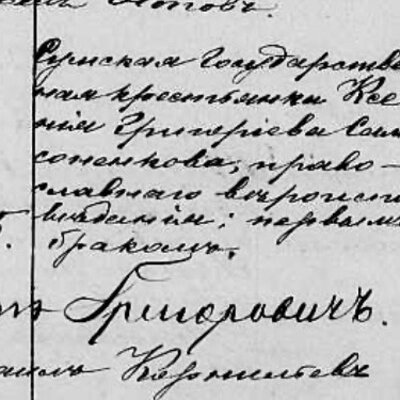 Поповъ.
Сумская государствен
ная крестьянка Ксе
нія Григоріева Сам
соненкова, право-
славнаго вѣроиспо
вѣданія; первымъ
бракомъ.
Григоровичъ.
Корнильевъ